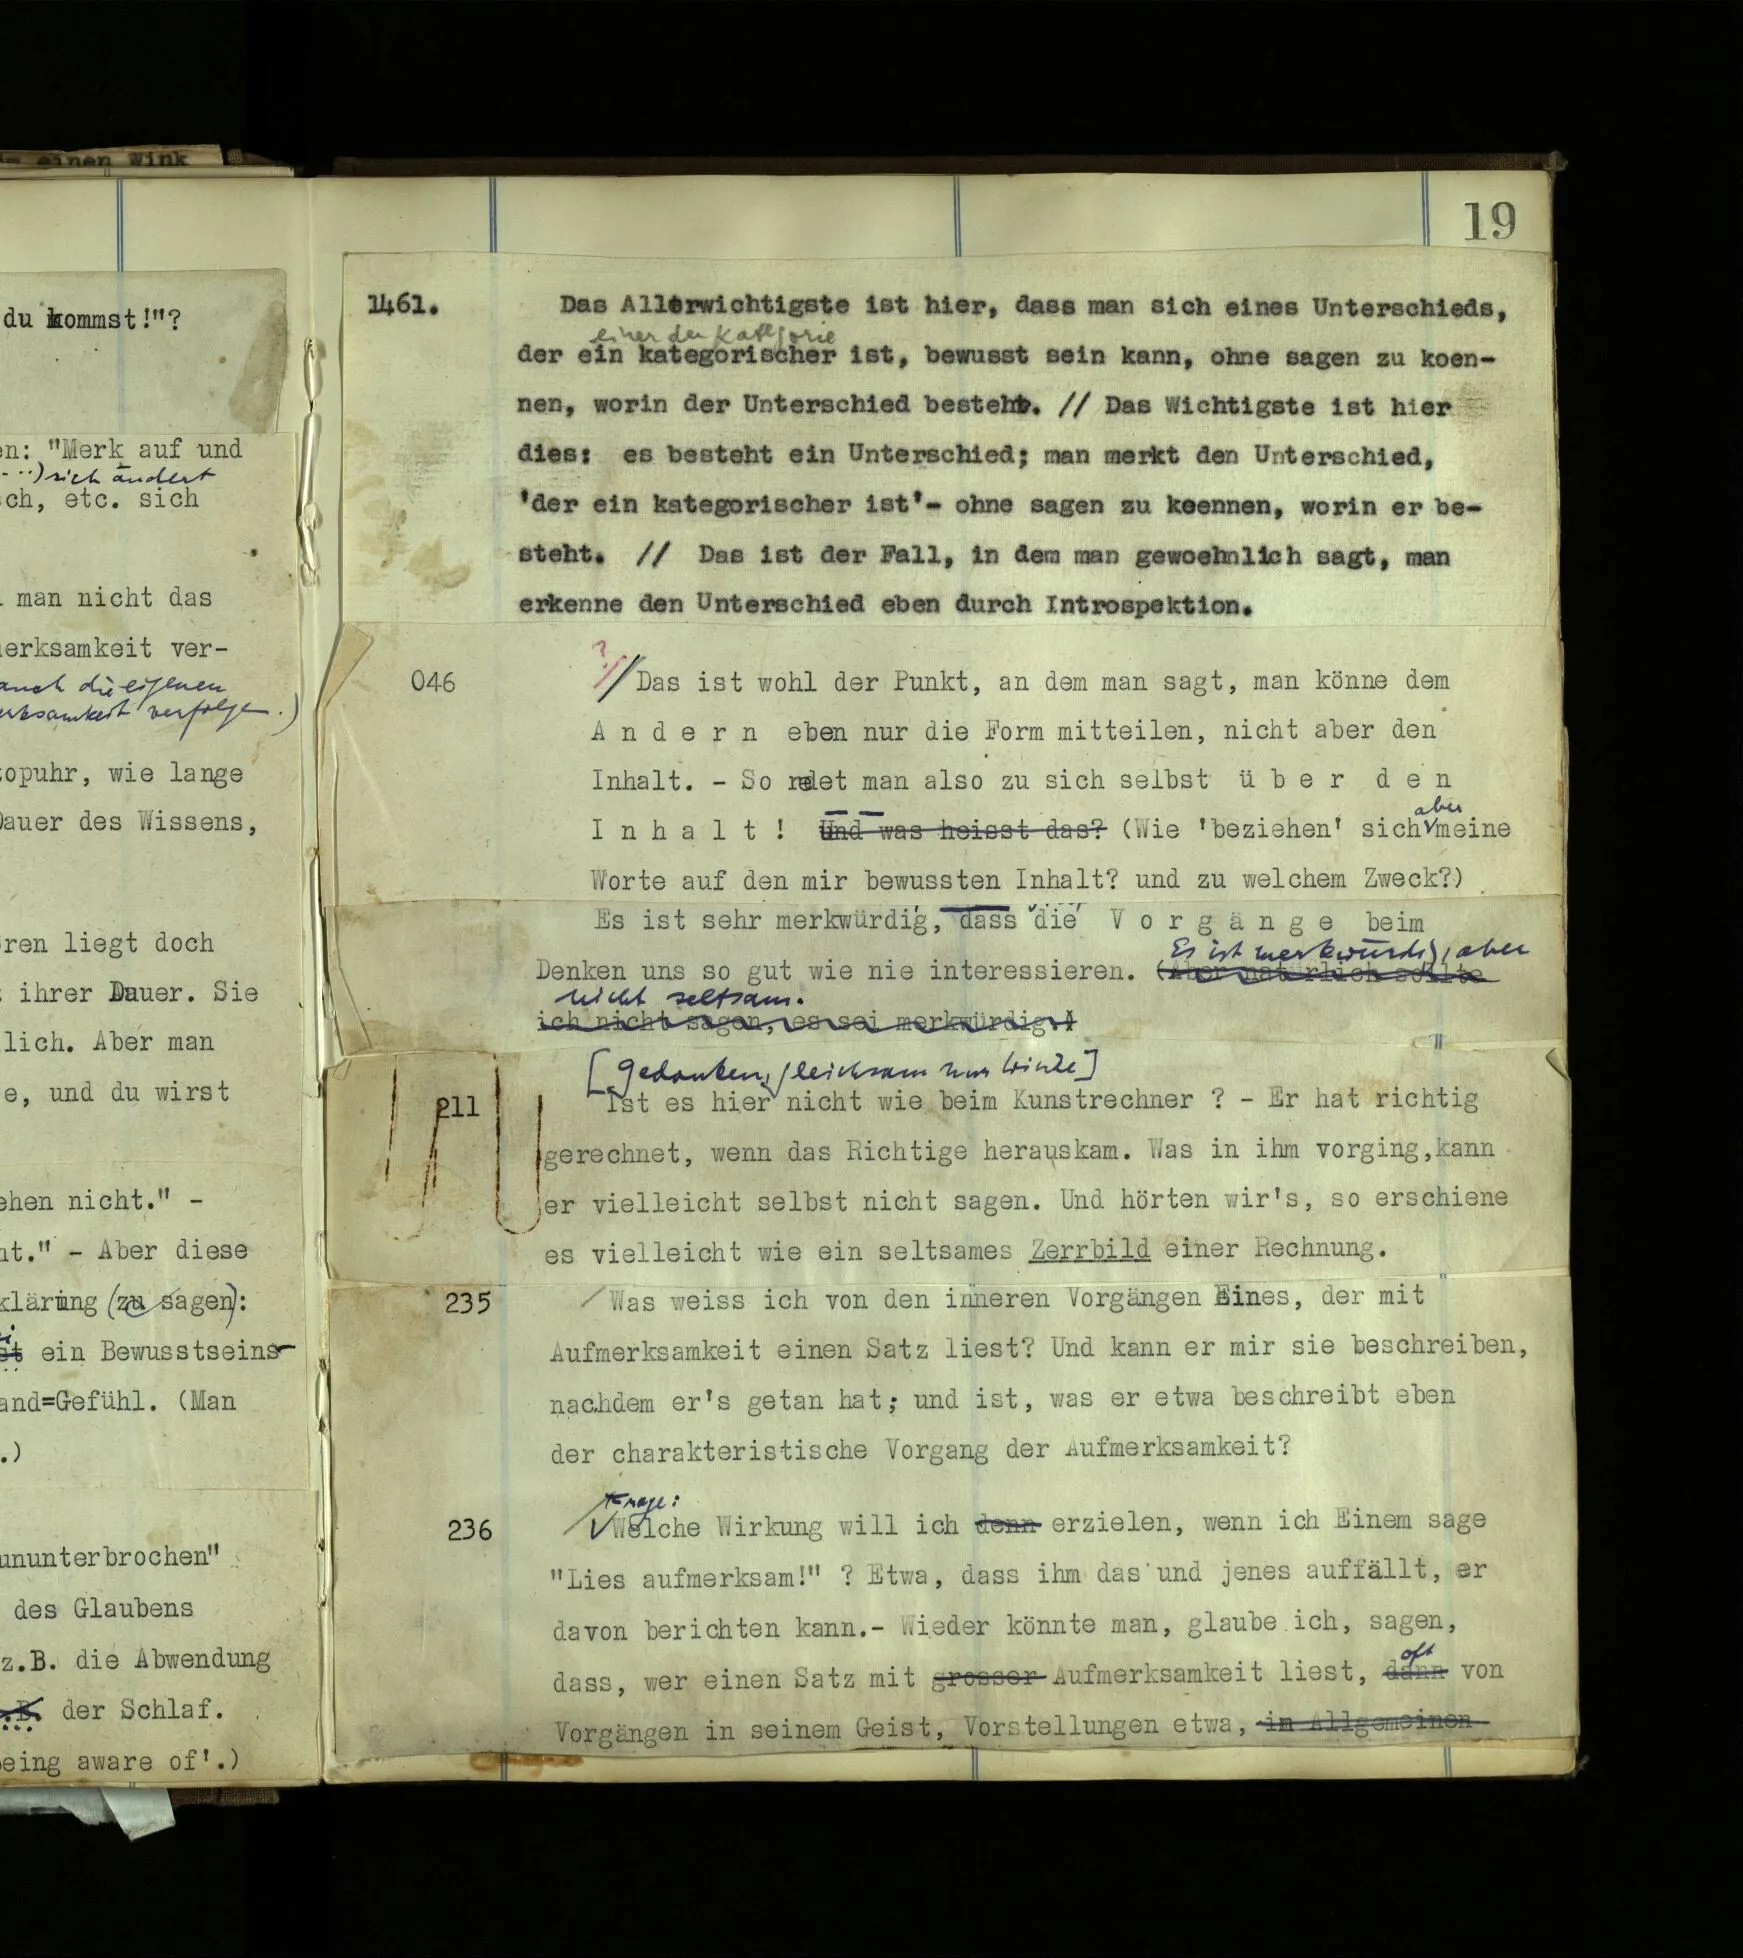 m einen Wink
du kommst!"?
en: "Merk auf und
sich ändert
ch, etc. sich
man nicht das
erksamkeit ver-
auch die eigenen
erksamkeit verfolgen.)
topuhr, wie lange
Dauer des Wissens,
ören liegt doch
ihrer Dauer. Sie
lich. Aber man
e, und du wirst
ehen nicht." -
nt." - Aber diese
klärung (zu sagen):
st ein Bewusstseins-
and=Gefühl. (Man
.)
ununterbrochen"
des Glaubens
z.B. die Abwendung
.B. der Schlaf.
being aware of'.)
19
1461. Das Allerwichtigste ist hier, dass man sich eines Unterschieds,
einer der Kategorie
der ein kategorischer ist, bewusst sein kann, ohne sagen zu koen-
nen, worin der Unterschied besteht. // Das Wichtigste ist hier
dies: es besteht ein Unterschied; man merkt den Unterschied,
'der ein kategorischer ist'- ohne sagen zu koennen, worin er be-
steht. // Das ist der Fall, in dem man gewoehnlich sagt, man
erkenne den Unterschied eben durch Introspektion.
046 ? // Das ist wohl der Punkt, an dem man sagt, man könne dem
A n d e r n eben nur die Form mitteilen, nicht aber den
Inhalt. - So redet man also zu sich selbst ü b e r d e n
aber
I n h a l t ! Und was heisst das? (Wie 'beziehen' sich meine
Worte auf den mir bewussten Inhalt? und zu welchem Zweck?)
Es ist sehr merkwürdig, dass die V o r g ä n g e beim
Es ist merkwürdig, aber
Denken uns so gut wie nie interessieren. (Aber natürlich sollte
nicht seltsam.
ich nicht sagen, es sei merkwürdig.)
[Gedanken, gleichsam nur Winke]
211 Ist es hier nicht wie beim Kunstrechner ? - Er hat richtig
gerechnet, wenn das Richtige herauskam. Was in ihm vorging, kann
er vielleicht selbst nicht sagen. Und hörten wir's, so erschiene
es vielleicht wie ein seltsames Zerrbild einer Rechnung.
235 / Was weiss ich von den inneren Vorgängen Eines, der mit
Aufmerksamkeit einen Satz liest? Und kann er mir sie beschreiben,
nachdem er's getan hat; und ist, was er etwa beschreibt eben
der charakteristische Vorgang der Aufmerksamkeit?
Frage:
236 / Welche Wirkung will ich denn erzielen, wenn ich Einem sage
"Lies aufmerksam!" ? Etwa, dass ihm das und jenes auffällt, er
davon berichten kann.- Wieder könnte man, glaube ich, sagen,
oft
dass, wer einen Satz mit grosser Aufmerksamkeit liest, dann von
Vorgängen in seinem Geist, Vorstellungen etwa, im Allgemeinen